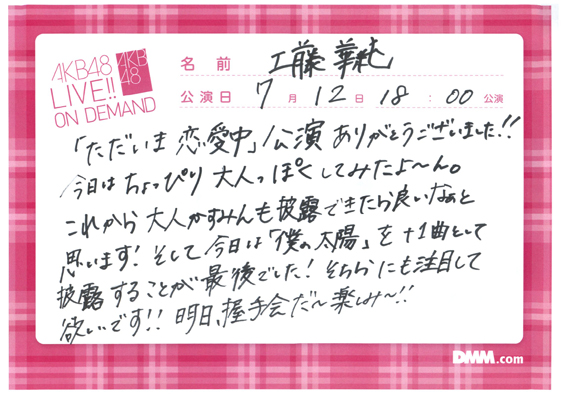 AKB48
LIVE!!
ON DEMAND
AKB
48
名前 工藤華純
公演日 7月12日 18:00 公演
「ただいま 恋愛中」公演 ありがとうございました!!
今日はちょっぴり 大人っぽくしてみたよ〜ん。
これから 大人かすみんも披露できたら良いなぁと
思います! そして 今日は「僕の太陽」を +1曲として
披露することが最後でした! そちらにも注目して
欲しいです!! 明日、握手会だ〜 楽しみ〜!!
DMM.com